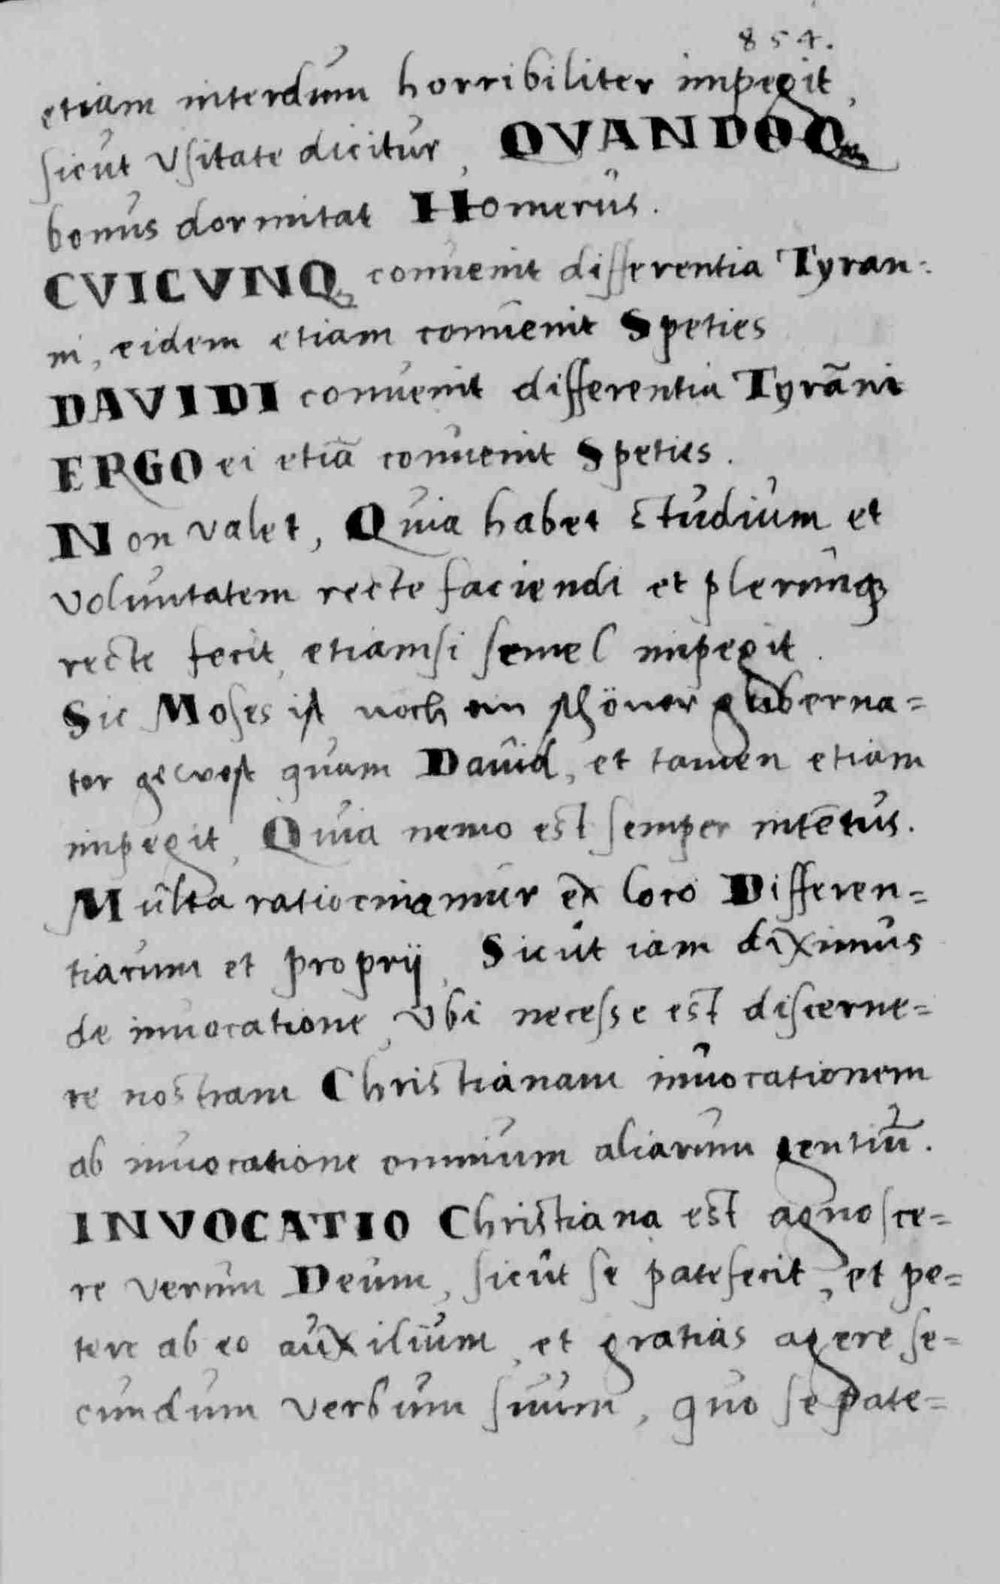 854.
etiam interdum horribiliter impegit,
sicut Vsitate dicitur, QVANDOQꝫ
bonus dormitat Homerus.
CVICVNQꝫ conuenit differentia Tyran-
ni, eidem etiam conuenit Speties
DAVIDI conuenit differentia Tyrāni
ERGO ei etiā conuenit Speties.
Non valet, Quia habet Studium et
voluntatem recte faciendi et plerunqꝫ
recte fecit, etiamsi semel impegit.
Sic Moses ist noch ein schöner guberna-
tor gewest quam Dauid, et tamen etiam
impegit, Quia nemo est semper intētus.
Multa ratiocinamur ex loco Differen-
tiarum et proprij, Sicut iam diximus
de inuocatione, Vbi necesse est discerne-
re nostram Christianam inuocationem
ab inuocatione omnium aliarum gentiū.
INVOCATIO Christiana est agnosce-
re verum Deum, sicut se patefecit, et pe-
tere ab eo auxilium, et gratias agere se-
cundum verbum suum, quo se pate-